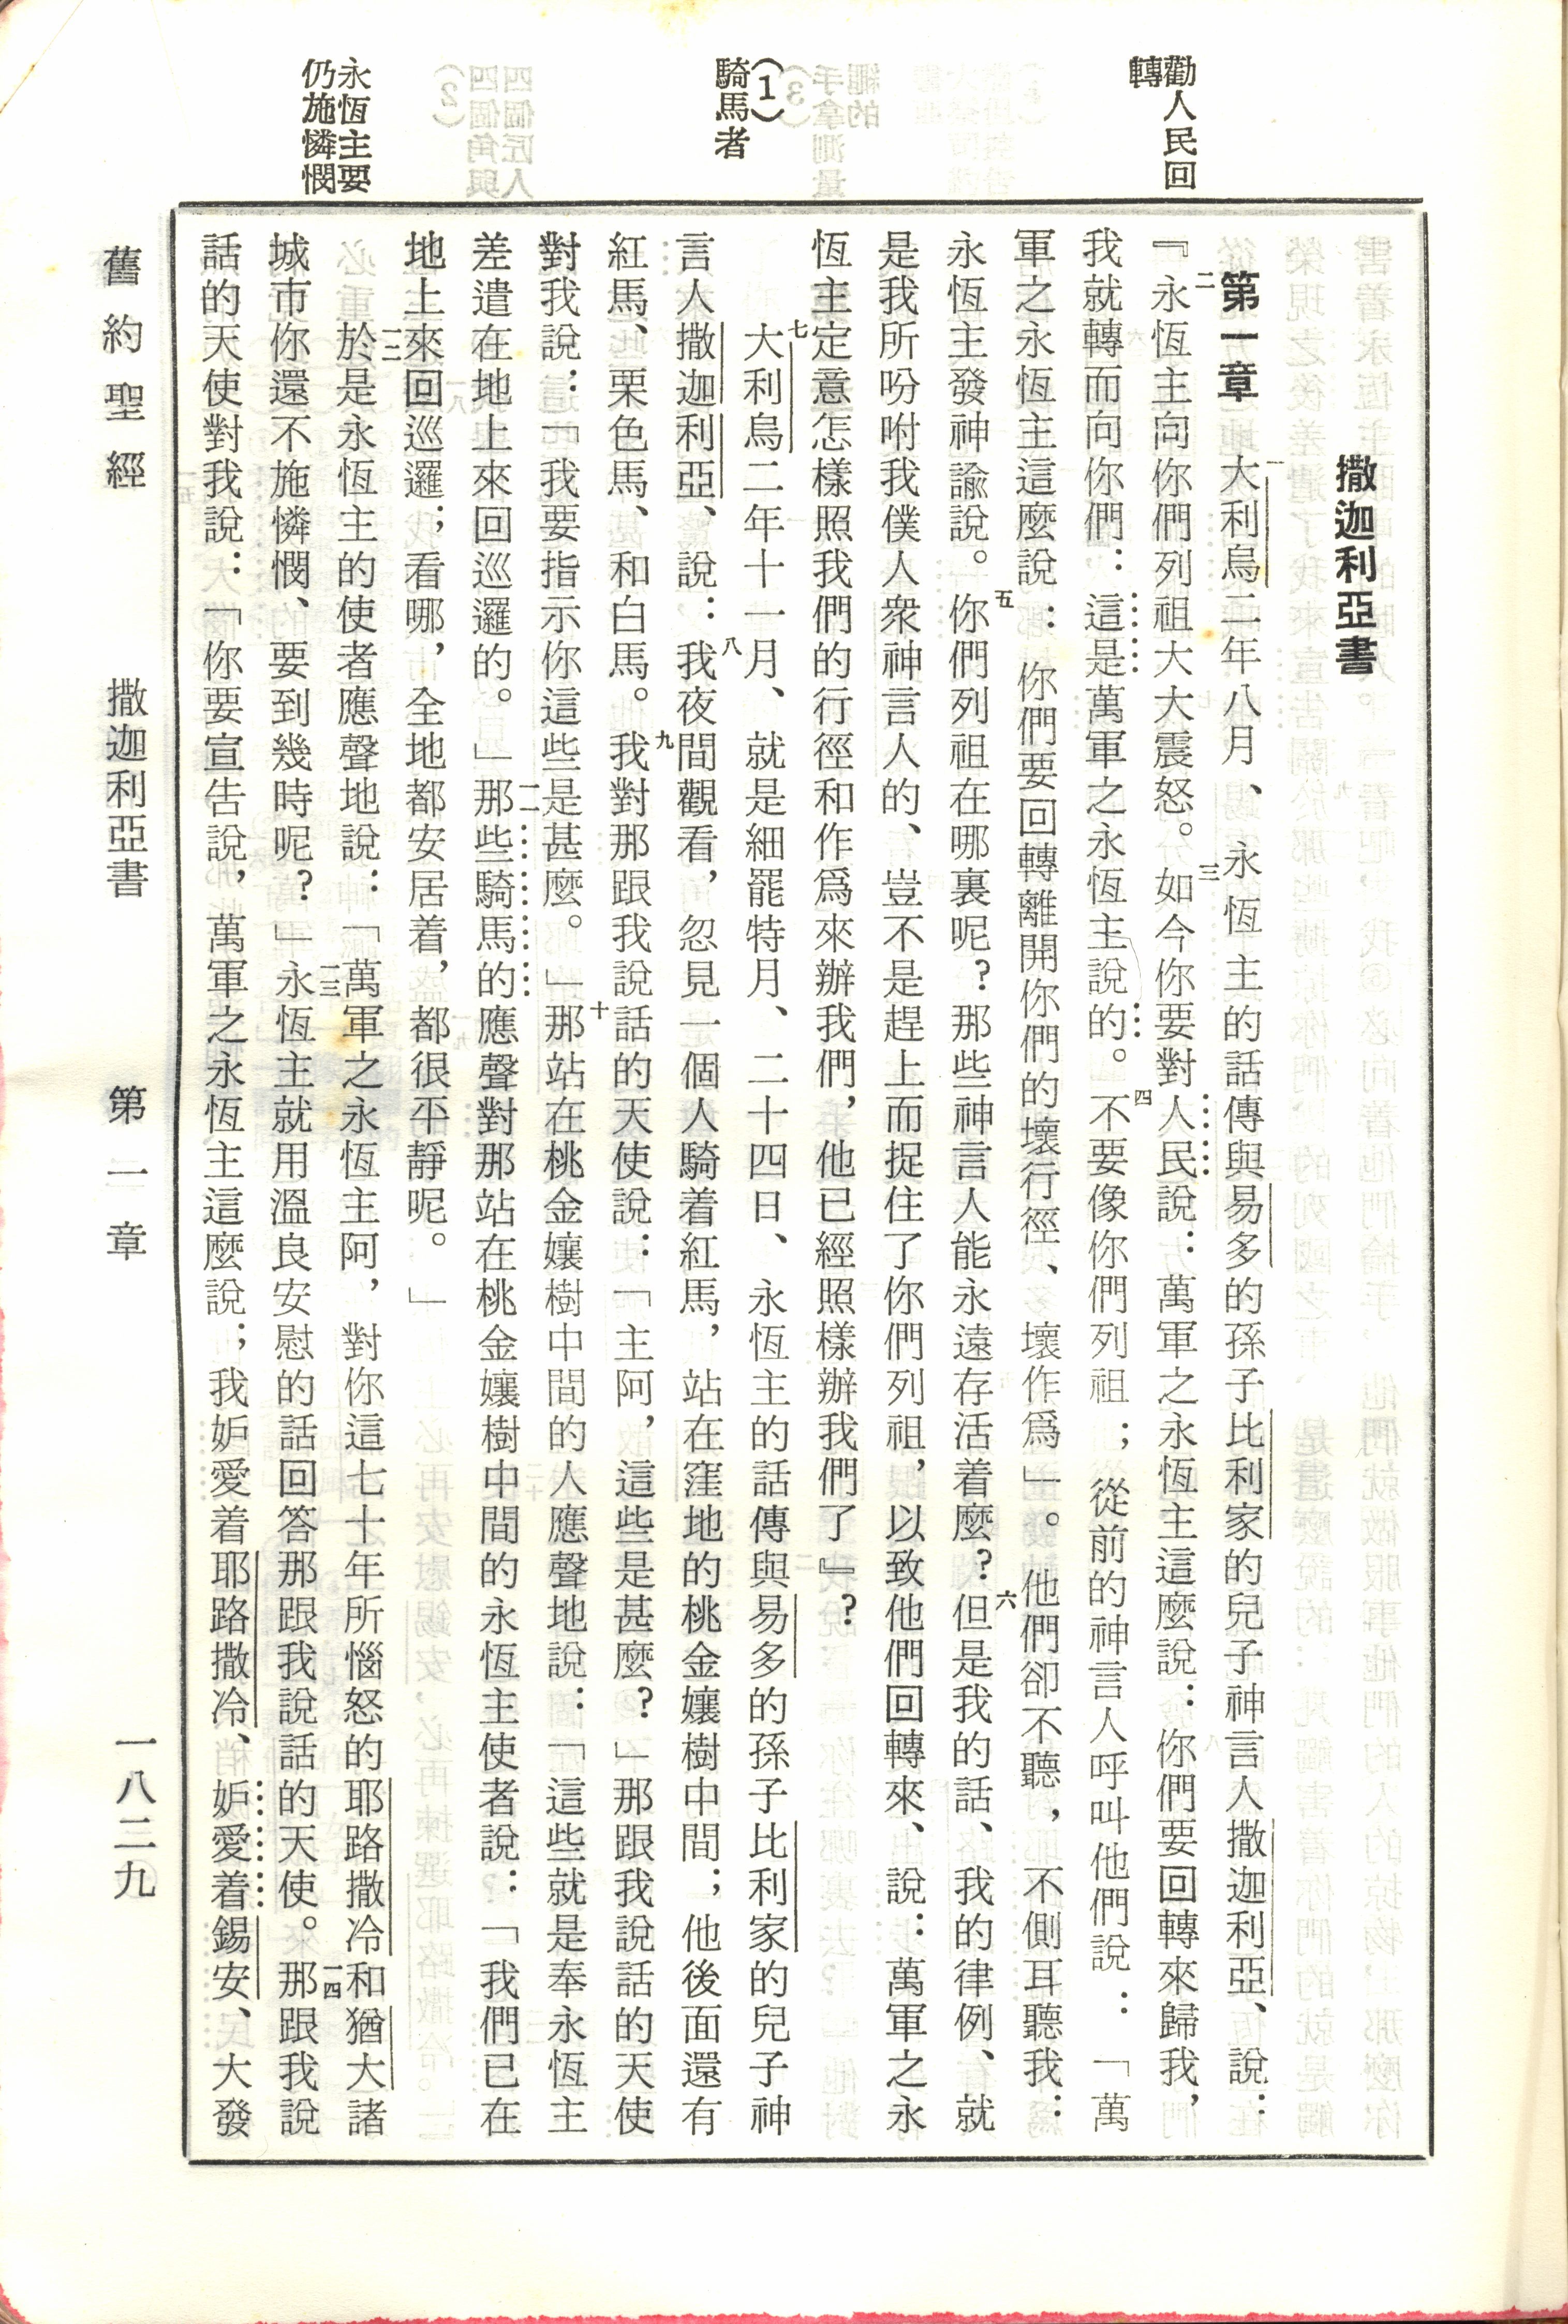 勸人民回
轉
(1)
騎馬者
永恆主要
仍施憐憫
撒迦利亞書
第一章 一大利烏二年八月、永恆主的話傳與易多的孫子比利家的兒子神言人撒迦利亞、說：
二『永恆主向你們列祖大大震怒。三如今你要對人民說：萬軍之永恆主這麼說：你們要回轉來歸我，
我就轉而向你們：這是萬軍之永恆主說的。四不要像你們列祖；從前的神言人呼叫他們說：「萬
軍之永恆主這麼說：你們要回轉離開你們的壞行徑、壞作爲」。他們卻不聽，不側耳聽我：
永恆主發神諭說。五你們列祖在哪裏呢？那些神言人能永遠存活着麼？六但是我的話、我的律例、就
是我所吩咐我僕人衆神言人的、豈不是趕上而捉住了你們列祖，以致他們回轉來、說：萬軍之永
恆主定意怎樣照我們的行徑和作爲來辦我們，他已經照樣辦我們了』？
七大利烏二年十一月、就是細罷特月、二十四日、永恆主的話傳與易多的孫子比利家的兒子神
言人撒迦利亞、說：八我夜間觀看，忽見一個人騎着紅馬，站在窪地的桃金孃樹中間；他後面還有
紅馬、栗色馬、和白馬。九我對那跟我說話的天使說：「主阿，這些是甚麼？」那跟我說話的天使
對我說：「我要指示你這些是甚麼。」十那站在桃金孃樹中間的人應聲地說：「這些就是奉永恆主
差遣在地上來回巡邏的。」一一那些騎馬的應聲對那站在桃金孃樹中間的永恆主使者說：「我們已在
地上來回巡邏；看哪，全地都安居着，都很平靜呢。」
一二於是永恆主的使者應聲地說：「萬軍之永恆主阿，對你這七十年所惱怒的耶路撒冷和猶大諸
城市你還不施憐憫、要到幾時呢？」一三永恆主就用溫良安慰的話回答那跟我說話的天使。一四那跟我說
話的天使對我說：「你要宣告說，萬軍之永恆主這麼說；我妒愛着耶路撒冷、妒愛着錫安、大發
舊約聖經 撒迦利亞書 第一章 一八二九